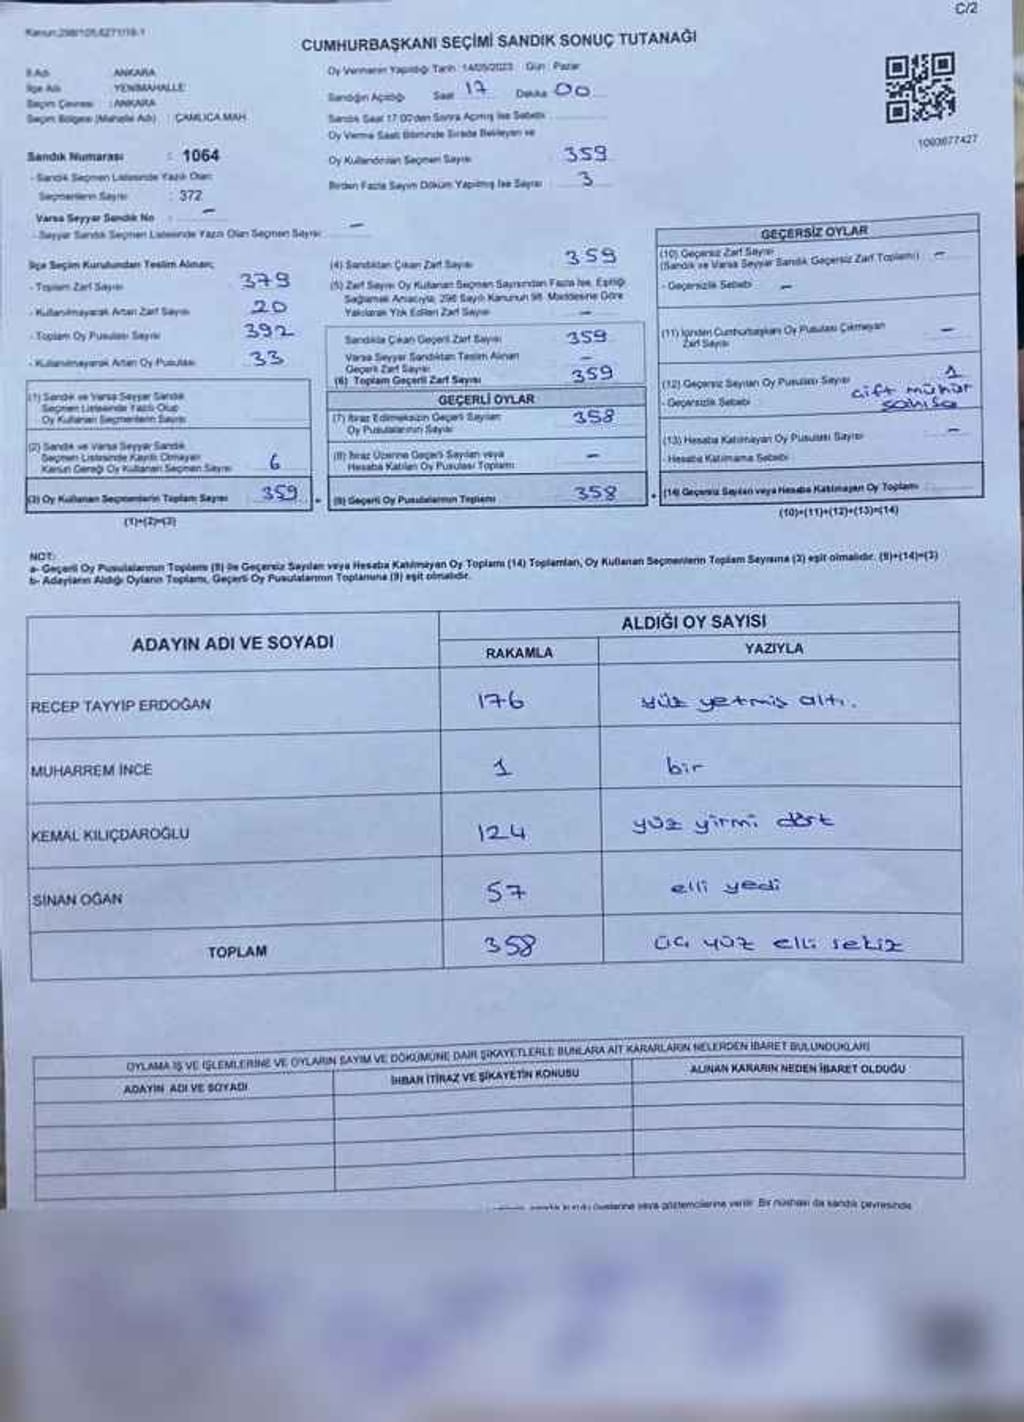 C/2
Kanun:298/105,6271/19-1
CUMHURBAŞKANI SEÇİMİ SANDIK SONUÇ TUTANAĞI
İl Adı : ANKARA
İlçe Adı : YENİMAHALLE
Seçim Çevresi : ANKARA
Seçim Bölgesi (Mahalle Adı) : ÇAMLICA MAH.
Sandık Numarası : 1064
- Sandık Seçmen Listesinde Yazılı Olan
Seçmenlerin Sayısı : 372
Varsa Seyyar Sandık No : -
- Seyyar Sandık Seçmen Listesinde Yazılı Olan Seçmen Sayısı -
Oy Vermenin Yapıldığı Tarih :14/05/2023 Gün : Pazar
Sandığın Açıldığı Saat 17 Dakika 00
Sandık Saat 17:00'den Sonra Açılmış İse Sebebi
Oy Verme Saati Bitiminde Sırada Bekleyen ve
Oy Kullandırılan Seçmen Sayısı 359
Birden Fazla Sayım Döküm Yapılmış İse Sayısı 3
1003677427
İlçe Seçim Kurulundan Teslim Alınan;
- Toplam Zarf Sayısı 379
- Kullanılmayarak Artan Zarf Sayısı 20
- Toplam Oy Pusulası Sayısı 392
- Kullanılmayarak Artan Oy Pusulası 33
(1) Sandık ve Varsa Seyyar Sandık
Seçmen Listesinde Yazılı Olup
Oy Kullanan Seçmenlerin Sayısı
(2) Sandık ve Varsa Seyyar Sandık
Seçmen Listesinde Kayıtlı Olmayan
Kanun Gereği Oy Kullanan Seçmen Sayısı 6
(3) Oy Kullanan Seçmenlerin Toplam Sayısı 359
(1)+(2)=(3)
(4) Sandıktan Çıkan Zarf Sayısı 359
(5) Zarf Sayısı Oy Kullanan Seçmen Sayısından Fazla İse, Eşitliği
Sağlamak Amacıyla, 298 Sayılı Kanunun 98. Maddesine Göre
Yakılarak Yok Edilen Zarf Sayısı -
Sandıkta Çıkan Geçerli Zarf Sayısı 359
Varsa Seyyar Sandıktan Teslim Alınan
Geçerli Zarf Sayısı -
(6) Toplam Geçerli Zarf Sayısı 359
GEÇERLİ OYLAR
(7) İtiraz Edilmeksizin Geçerli Sayılan
Oy Pusulalarının Sayısı 358
(8) İtiraz Üzerine Geçerli Sayılan veya
Hesaba Katılan Oy Pusulası Toplamı -
(9) Geçerli Oy Pusulalarının Toplamı 358
GEÇERSİZ OYLAR
(10) Geçersiz Zarf Sayısı
(Sandık ve Varsa Seyyar Sandık Geçersiz Zarf Toplamı) -
- Geçersizlik Sebebi -
(11) İçinden Cumhurbaşkanı Oy Pusulası Çıkmayan
Zarf Sayısı -
(12) Geçersiz Sayılan Oy Pusulası Sayısı 1
- Geçersizlik Sebebi çift mühür
(13) Hesaba Katılmayan Oy Pusulası Sayısı -
- Hesaba Katılmama Sebebi
(14) Geçersiz Sayılan veya Hesaba Katılmayan Oy Toplamı
(10)+(11)+(12)+(13)=(14)
NOT:
a- Geçerli Oy Pusulalarının Toplamı (9) ile Geçersiz Sayılan veya Hesaba Katılmayan Oy Toplamı (14) Toplamları, Oy Kullanan Seçmenlerin Toplam Sayısına (3) eşit olmalıdır. (9)+(14)=(3)
b- Adayların Aldığı Oyların Toplamı, Geçerli Oy Pusulalarının Toplamına (9) eşit olmalıdır.
ADAYIN ADI VE SOYADI ALDIĞI OY SAYISI
RAKAMLA YAZIYLA
RECEP TAYYİP ERDOĞAN 176 yüz yetmiş altı.
MUHARREM İNCE 1 bir
KEMAL KILIÇDAROĞLU 124 yüz yirmi dört
SİNAN OĞAN 57 elli yedi
TOPLAM 358 üç yüz elli sekiz
OYLAMA İŞ VE İŞLEMLERİNE VE OYLARIN SAYIM VE DÖKÜMÜNE DAİR ŞİKAYETLERLE BUNLARA AİT KARARLARIN NELERDEN İBARET BULUNDUKLARI
ADAYIN ADI VE SOYADI İHBAR İTİRAZ VE ŞİKAYETİN KONUSU ALINAN KARARIN NEDEN İBARET OLDUĞU
üyelerine veya gözlemcilerine verilir. Bir nüshası da sandık çevresinde